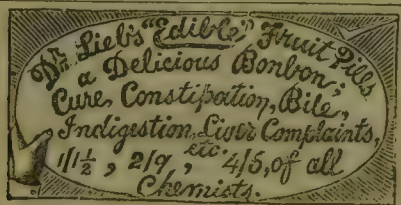 Dr. Lieb's "Edible" Fruit Pills
a Delicious Bonbon;
Cure Constipation, Bile,
Indigestion, Liver Complaints,
etc.
1/1½, 2/9, 4/5, of all
Chemists.